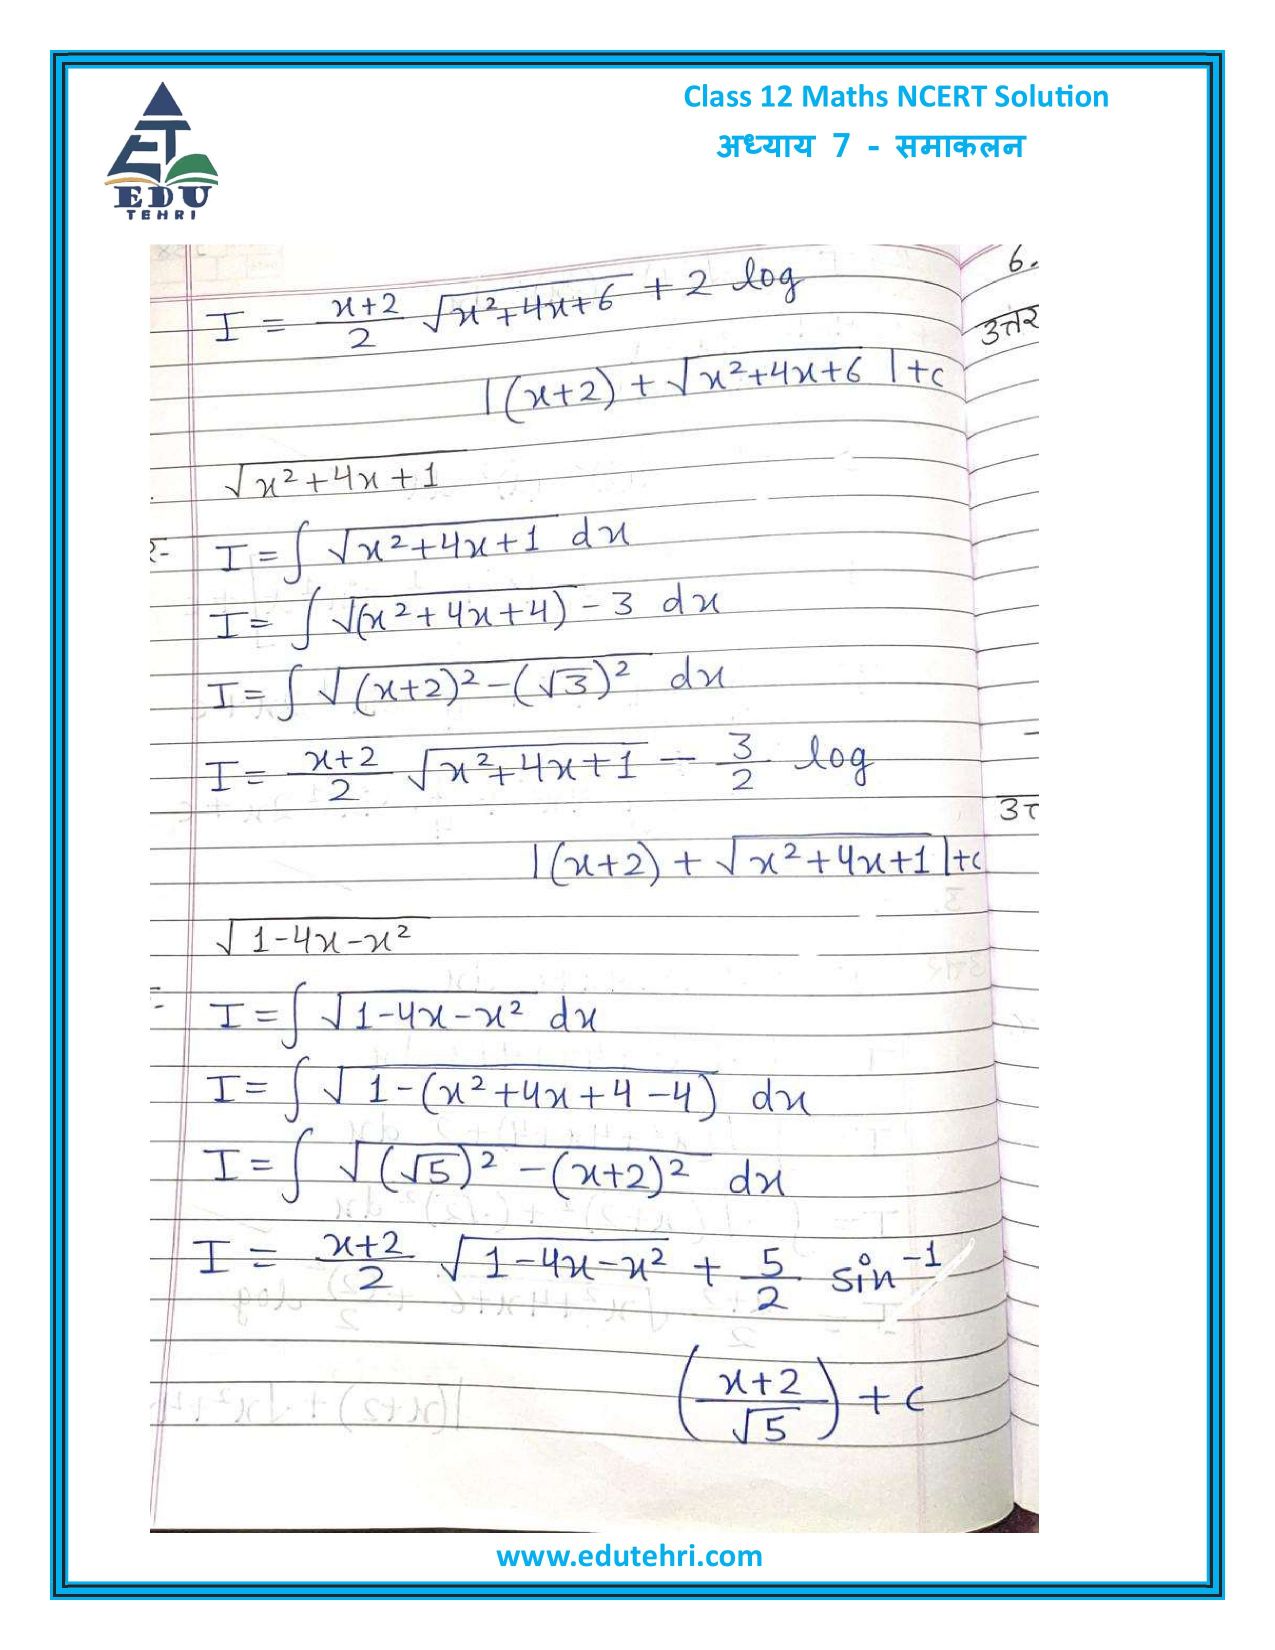 EDU
TEHRI
Class 12 Maths NCERT Solution
अध्याय 7 - समाकलन
I = x+2/2 √x²+4x+6 + 2 log
|(x+2) + √x²+4x+6 |+c
√x²+4x+1
I = ∫ √x²+4x+1 dx
I = ∫ √(x²+4x+4) - 3 dx
I = ∫ √(x+2)² - (√3)² dx
I = x+2/2 √x²+4x+1 - 3/2 log
|(x+2) + √x²+4x+1 |+c
√1-4x-x²
I = ∫ √1-4x-x² dx
I = ∫ √1-(x²+4x+4-4) dx
I = ∫ √(√5)² - (x+2)² dx
I = x+2/2 √1-4x-x² + 5/2 sin⁻¹
(x+2/√5) + c
6.
उत्तर
www.edutehri.com